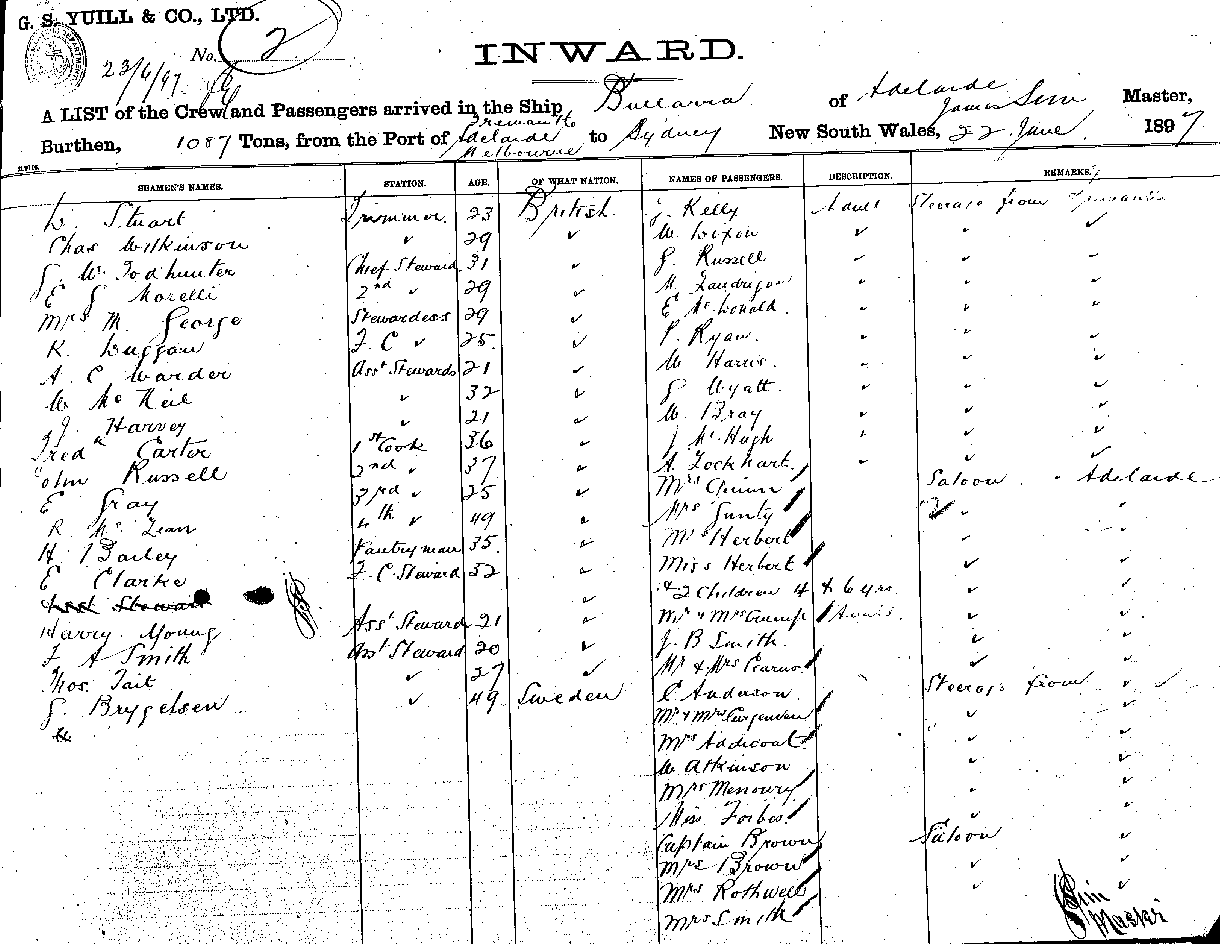 G. S. YUILL & CO., LTD.
No. 2
23/6/97
INWARD.
A LIST of the Crew and Passengers arrived in the Ship Bullarra of Adelaide James Sim Master,
Burthen, 1087 Tons, from the Port of Fremantle Adelaide Melbourne to Sydney New South Wales, 22 June 1897
SEAMEN'S NAMES. STATION. AGE. OF WHAT NATION. NAMES OF PASSENGERS. DESCRIPTION. REMARKS.
D. Stuart Trimmer 23 British J. Kelly Adult Steerage from Fremantle
Chas Wilkinson " 29 " W Dixon " " "
G. W. Todhunter Chief Steward 31 " G. Russell " " "
E G Morelli 2nd " 29 " M. Landrigan " " "
Mrs M. George Stewardess 29 " E McDonald " " "
R. Duggan F. C " 25 " P. Ryan " " "
A. C Warder Asst Stewards 21 " W Harris " " "
W McNeil " 32 " G Wyatt " " "
J. Harvey " 21 " W Bray " " "
Fredk Carter 1st Cook 36 " J McHugh " " "
John Russell 2nd " 37 " A. Lockhart " " "
E Gray 3rd " 25 " Mrs Quinn Saloon " Adelaide
R McLean 4th " 49 " Mrs Gunty " "
H. Bailey Pantryman 35 " Mr Herbert " "
E Clarke F. C. Steward 32 " Miss Herbert " "
Asst Steward " & 2 Children 4 & 6 yrs " "
Harry Young Asst Steward 21 " Mr & Mrs Crump Adults " "
F A Smith Asst Steward 20 " J. B Smith " "
Thos. Tait " 27 " Mr & Mrs " "
G. Brygelsen " 49 Sweden C Anderson Steerage from "
Mr & Mrs Jurgensen " "
Mrs Addicoat " "
W Atkinson " "
Mrs " "
Miss Forbes " "
Captain Brown Saloon "
Mrs Brown " "
Mrs Rothwell " "
Mrs Smith
J Sim
Master